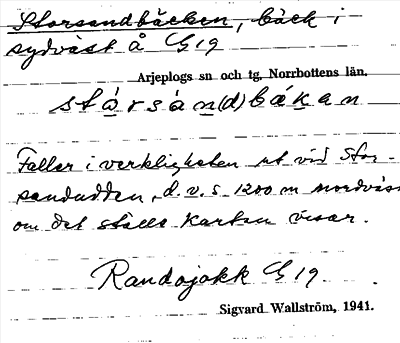 Storsandbäcken, bäck i
sydväst å G 19
Arjeplogs sn och tg. Norrbottens län.
stársán(d)bákan
Faller i verkligheten ut vid Stor-
sandudden, d.v.s. 1200 m nordväst
om det ställe kartan visar.
Randojokk G 19.
Sigvard Wallström, 1941.